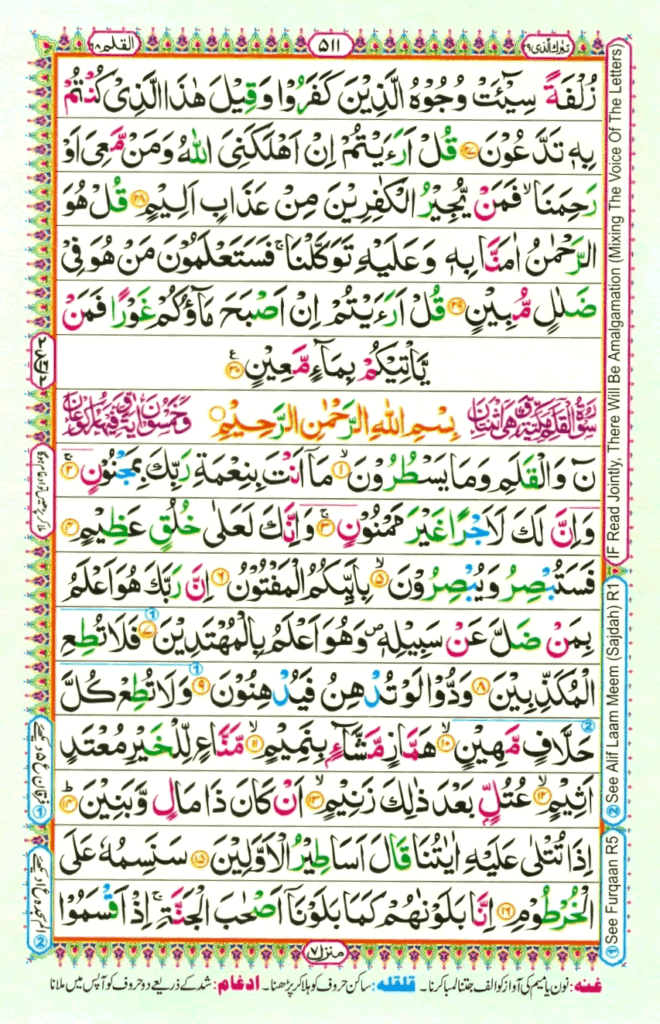 تبٰرك الذی ٢٩
٥١١
القلم ٦٨
زُلْفَةً سِیْٓـَٔتْ وُجُوْهُ الَّذِیْنَ كَفَرُوْا وَقِیْلَ هٰذَا الَّذِیْ كُنْتُمْ
بِهٖ تَدَّعُوْنَ ﴿٢٧﴾ قُلْ اَرَءَیْتُمْ اِنْ اَهْلَكَنِیَ اللّٰهُ وَمَنْ مَّعِیَ اَوْ
رَحِمَنَا ۙ فَمَنْ یُّجِیْرُ الْكٰفِرِیْنَ مِنْ عَذَابٍ اَلِیْمٍ ﴿٢٨﴾ قُلْ هُوَ
الرَّحْمٰنُ اٰمَنَّا بِهٖ وَعَلَیْهِ تَوَكَّلْنَا ۚ فَسَتَعْلَمُوْنَ مَنْ هُوَ فِیْ
ضَلٰلٍ مُّبِیْنٍ ﴿٢٩﴾ قُلْ اَرَءَیْتُمْ اِنْ اَصْبَحَ مَآؤُكُمْ غَوْرًا فَمَنْ
یَّاْتِیْكُمْ بِمَآءٍ مَّعِیْنٍ ﴿٣٠﴾ ع
بِسْمِ اللّٰهِ الرَّحْمٰنِ الرَّحِیْمِ
نٓ وَالْقَلَمِ وَمَا یَسْطُرُوْنَ ﴿١﴾ مَاۤ اَنْتَ بِنِعْمَةِ رَبِّكَ بِمَجْنُوْنٍ ﴿٢﴾
وَاِنَّ لَكَ لَاَجْرًا غَیْرَ مَمْنُوْنٍ ﴿٣﴾ وَاِنَّكَ لَعَلٰی خُلُقٍ عَظِیْمٍ ﴿٤﴾
فَسَتُبْصِرُ وَیُبْصِرُوْنَ ﴿٥﴾ بِاَیِّىكُمُ الْمَفْتُوْنُ ﴿٦﴾ اِنَّ رَبَّكَ هُوَ اَعْلَمُ
بِمَنْ ضَلَّ عَنْ سَبِیْلِهٖ ۪ وَهُوَ اَعْلَمُ بِالْمُهْتَدِیْنَ ﴿٧﴾ فَلَا تُطِعِ
الْمُكَذِّبِیْنَ ﴿٨﴾ وَدُّوْا لَوْ تُدْهِنُ فَیُدْهِنُوْنَ ﴿٩﴾ وَلَا تُطِعْ كُلَّ
حَلَّافٍ مَّهِیْنٍ ﴿١٠﴾ هَمَّازٍ مَّشَّآءٍۭ بِنَمِیْمٍ ﴿١١﴾ مَّنَّاعٍ لِّلْخَیْرِ مُعْتَدٍ
اَثِیْمٍ ﴿١٢﴾ عُتُلٍّۭ بَعْدَ ذٰلِكَ زَنِیْمٍ ﴿١٣﴾ اَنْ كَانَ ذَا مَالٍ وَّبَنِیْنَ ﴿١٤﴾
اِذَا تُتْلٰی عَلَیْهِ اٰیٰتُنَا قَالَ اَسَاطِیْرُ الْاَوَّلِیْنَ ﴿١٥﴾ سَنَسِمُهٗ عَلَی
الْخُرْطُوْمِ ﴿١٦﴾ اِنَّا بَلَوْنٰهُمْ كَمَا بَلَوْنَاۤ اَصْحٰبَ الْجَنَّةِ ۚ اِذْ اَقْسَمُوْا
منزل ٧
غنه: نون یا میم کی آواز کو الف جتنا لمبا کرنا۔ قلقله: ساکن حروف کو ہلا کر پڑھنا۔ ادغام: شد کے ذریعے دو حروف کو آپس میں ملانا
IF Read Jointly, There Will Be Amalgamation (Mixing The Voice Of The Letters)
② See Alif Laam Meem (Sajdah) R1
① See Furqaan R5
① فرقان ع ٥ دیکھئے